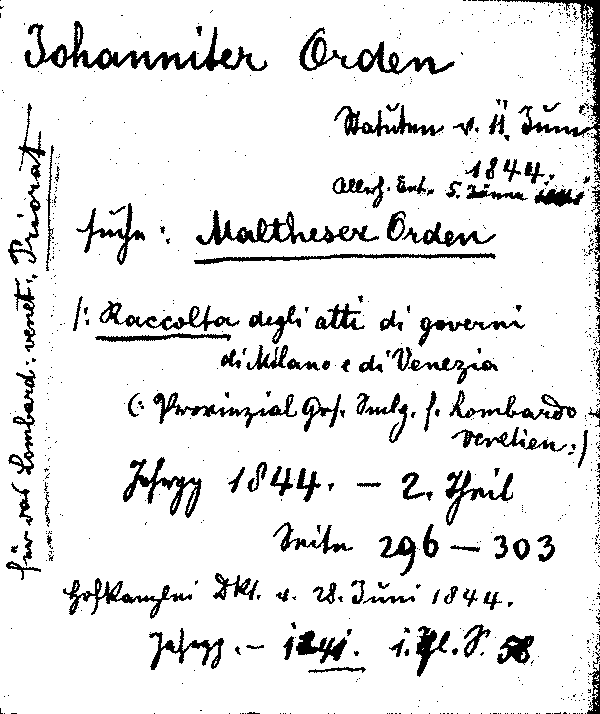 Johanniter Orden
Statuten v. 11. Juni
1844.
Allerh. Ent. 5. Jänner
siehe: Maltheser Orden
/: Raccolta degli atti di governi
di Milano e di Venezia
(: Provinzial Ges. Smlg. f. Lombardo-
Venetien :)
Jahrgg 1844. — 2. Theil
Seite 296 — 303
Hofkanzlei Dkt. v. 28. Juni 1844.
Jahrgg. — 1841. S. 58
für das Lombard: venet: Priorat